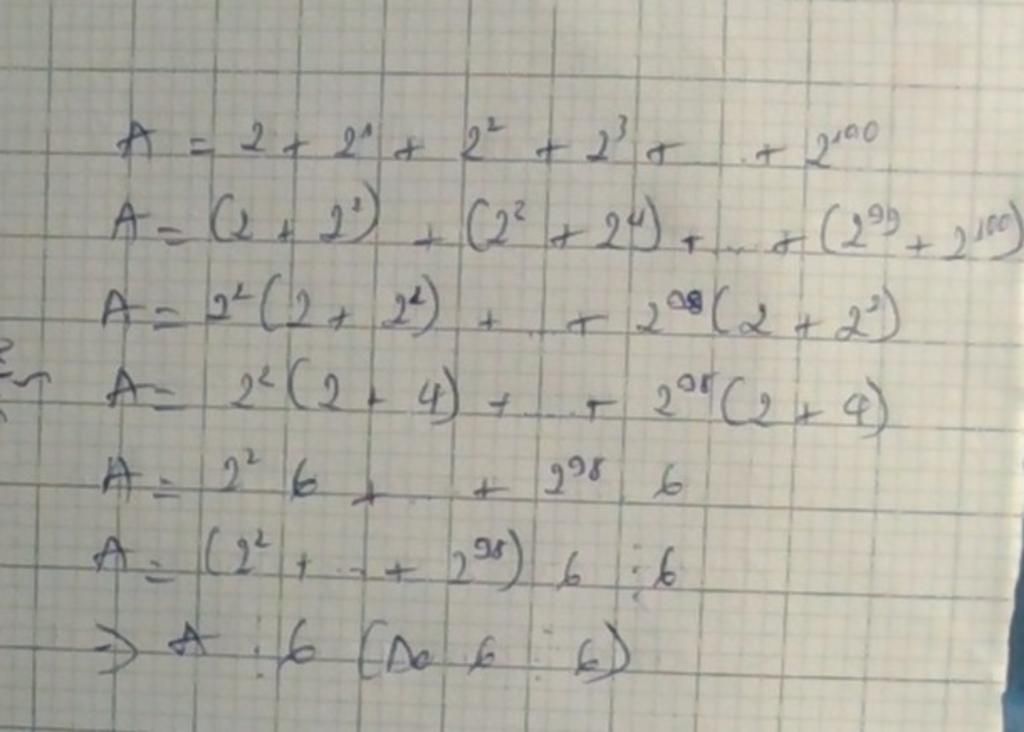 A = 2 + 2¹ + 2² + 2³ + ... + 2¹⁰⁰
A = (2 + 2²) + (2² + 2⁴) + ... + (2⁹⁹ + 2¹⁰⁰)
A = 2²(2 + 2²) + ... + 2⁹⁸(2 + 2²)
A = 2²(2 + 4) + ... + 2⁹⁸(2 + 4)
A = 2² 6 + ... + 2⁹⁸ 6
A = (2² + ... + 2⁹⁸) 6 ⋮ 6
⇒ A ⋮ 6 (Do 6 ⋮ 6)